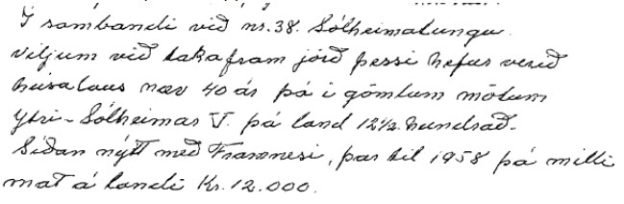 Í sambandi við nr. 38. Sólheimatungu.
viljum við taka fram jörð þessi hefur verið
húsalaus nær 40 ár þá í gömlum mötum
Ytri-Sólheimar V. þá land 12½ hundrað.
Síðan nýtt með Framnesi, þar til 1958 þá milli
mat á landi Kr. 12.000.